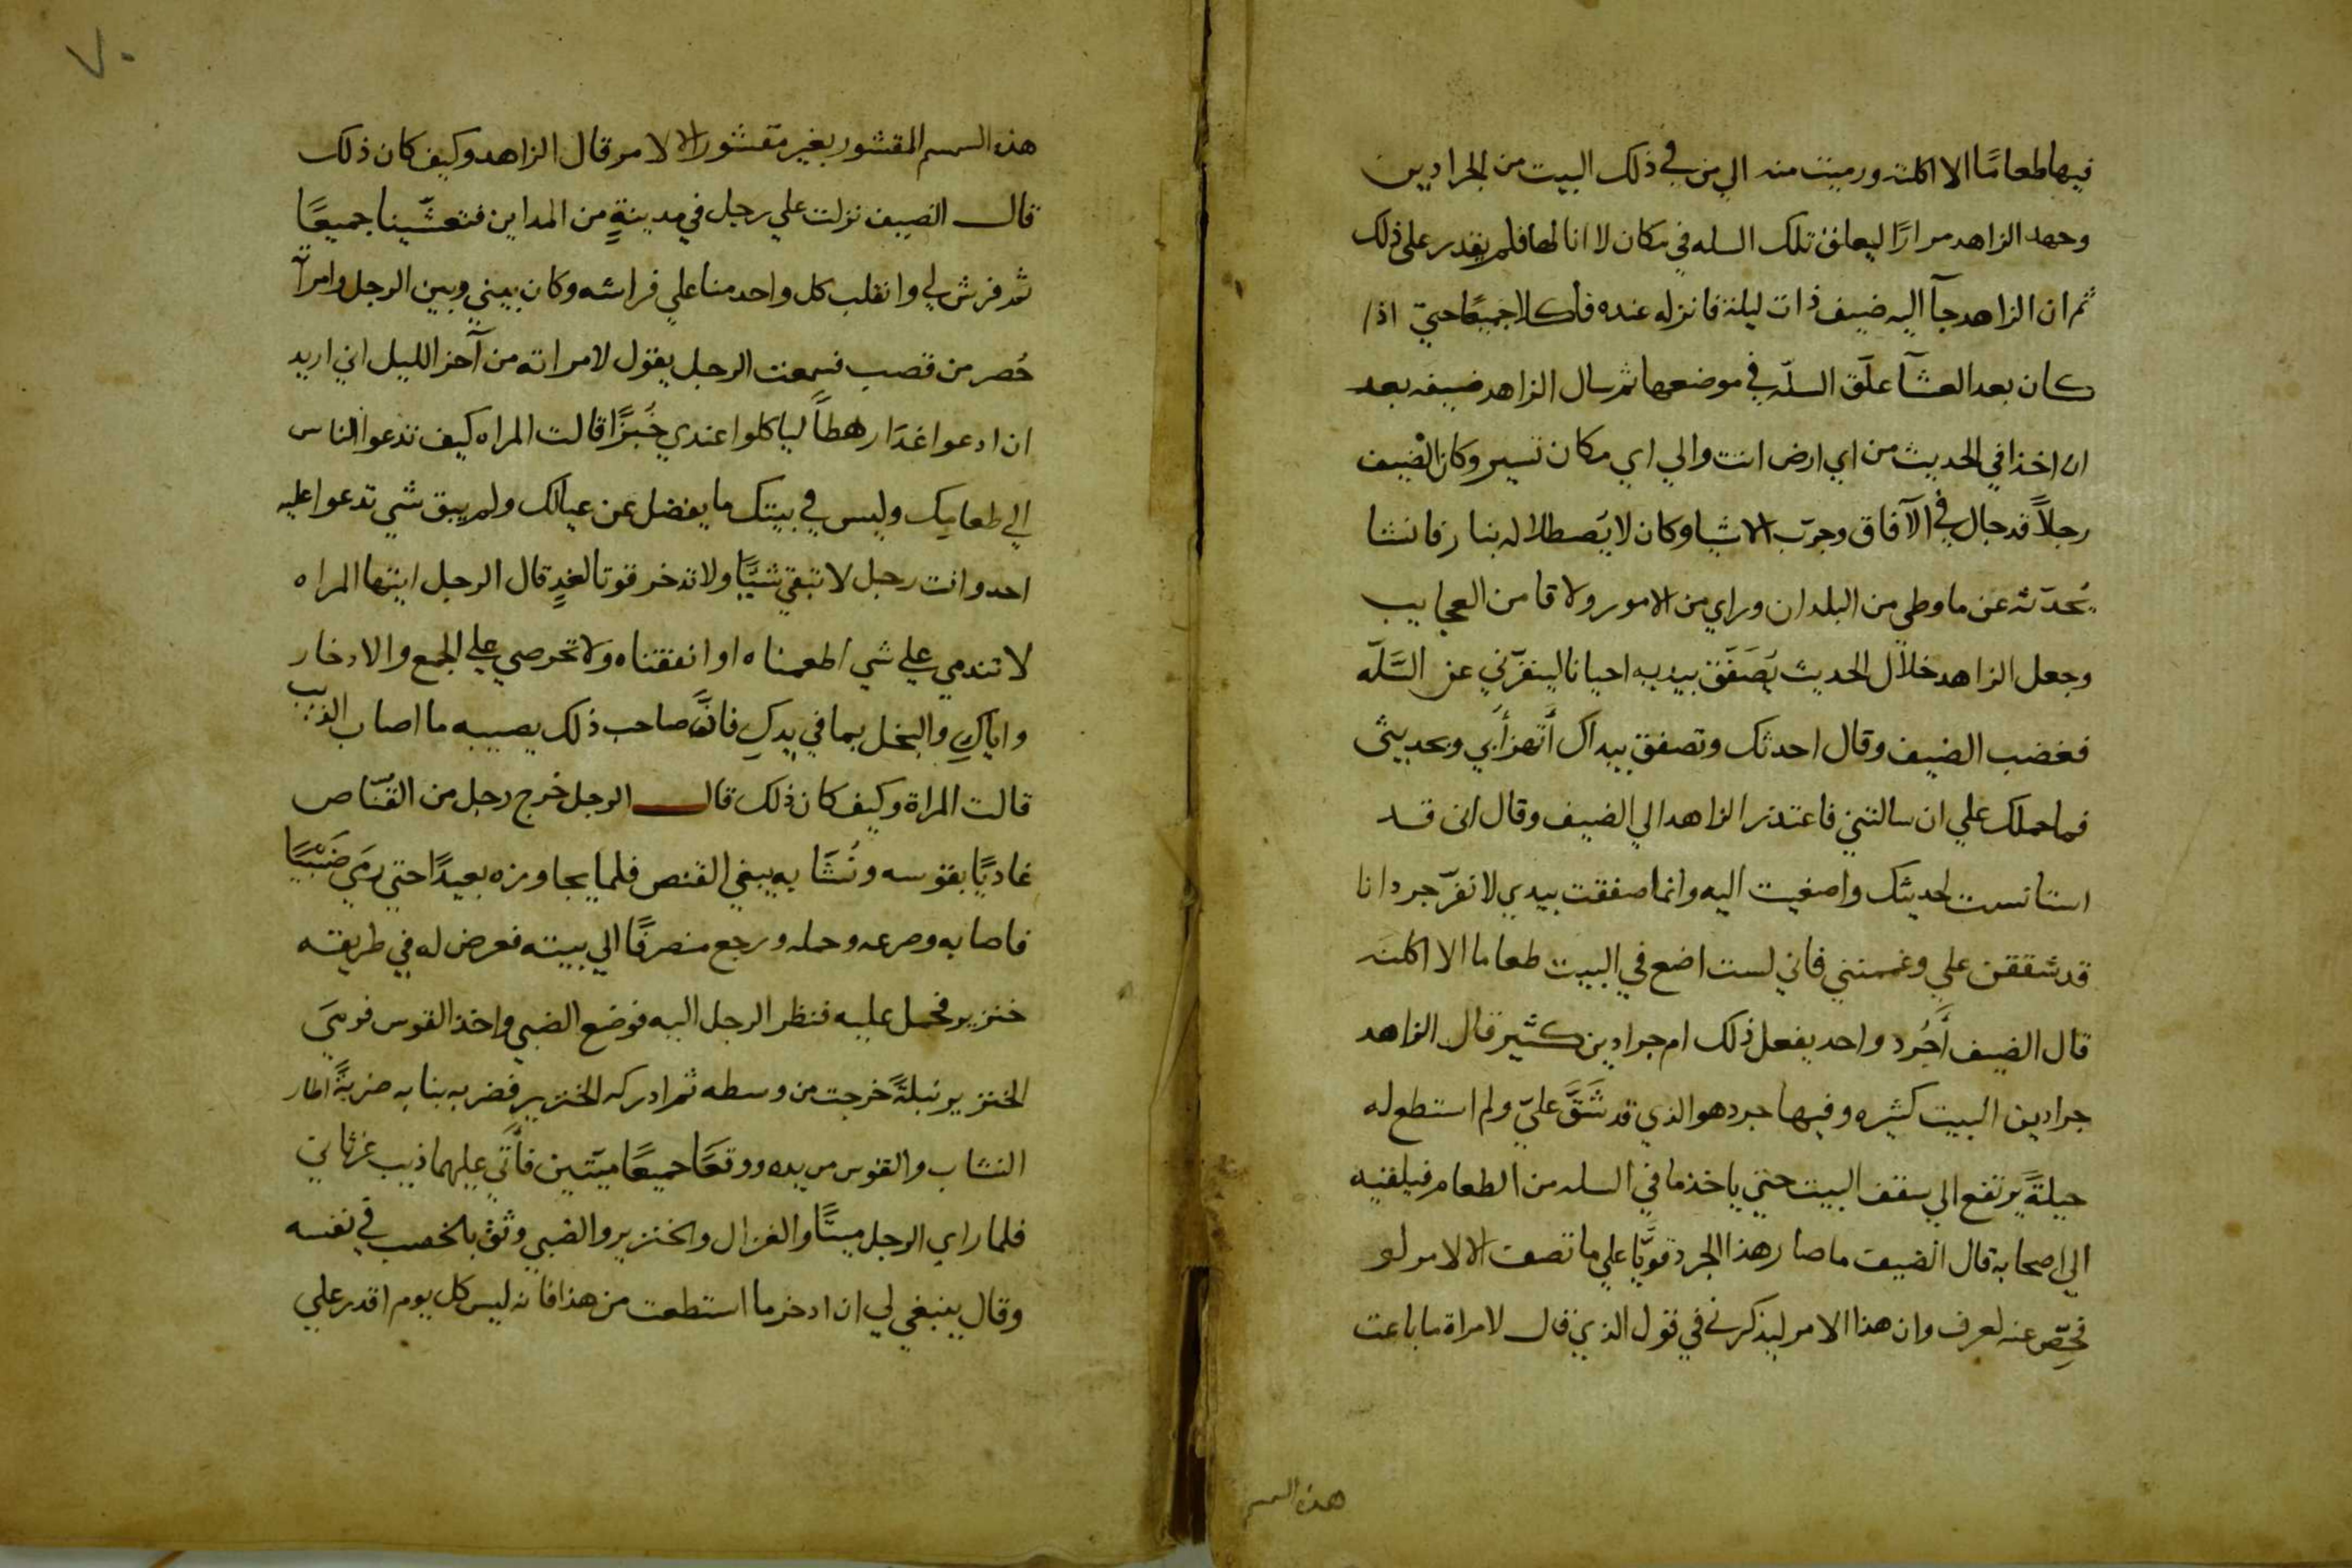 فيها طعامًا الا اكلته ورميت منه الي من في ذلك البيت من الجرادين
وجهد الزاهد مرارًا ليعلق تلك السله في مكان لا انالها فلم يقدر على ذلك
ثم ان الزاهد جآ اليه ضيف ذات ليلة فانزله عنده فأكلا جميعًا حتيّ اذا
كان بعد العشآ علّق السلّه في موضعها ثم سال الزاهد ضيفه بعد
ان اخذا في الحديث من اي ارض انت والي اي مكان تسير وكان الضيف
رجلاً قد جال في الآفاق وجرّب الاشيا وكان لا يُصطلا له بنار فانشا
يُحدّثه عن ما وطي من البلدان وراي من الامور ولاقا من العجايب
وجعل الزاهد خلال الحديث يُصَفّق بيديه احيانا لينفرّني عن السَّلّه
فغضب الضيف وقال احدثك وتصفق بيداك أتهزأبي وبحديثى
فما حملك علي ان سالتني فاعتذر الزاهد الي الضيف وقال انى قد
استانست لحديثك واصغيت اليه وانما صفقت بيدي لانفرّ جردانا
قد شققن علي وغممنني فاني لست اضع في البيت طعاما الا اكلنه
قال الضيف أَجُرد واحد يفعل ذلك ام جرادين كثير قال الزاهد
جرادين البيت كثيره وفيها جرد هو الذي قد شَقَّ عليّ ولم استطع له
حيلةً يرتفع الي سقف البيت حتي ياخذ ما في السله من الطعام فيلقيه
الي اصحابه قال الضيف ما صار هذا الجرد قويًّا علي ما تصف الا لامر لو
فحِّص عنه لعرف وان هذا الامر ليذكرني في قول الذي قال لامراة ما باعت
هذه السمسم
٧٠
هذه السمسم المقشور بغير مقشور الا لامر قال الزاهد وكيف كان ذلك
قال الضيف نزلت علي رجل في مدينةٍ من المداين فتعشّينا جميعًا
ثم فرش لي وانقلب كل واحد منا علي فراشه وكان بيني وبين الرجل وامراته
حُصر من قصب فسمعت الرجل يقول لامراته من آخر الليل اني اريد
ان ادعوا غدًا رهطاً لياكلوا عندي خُبزًا قالت المراه كيف تدعوا الناس
الي طعامِك وليس في بيتك ما يفضل عن عيالك ولم يبق شي تدعوا عليه
احد وانت رجل لا تبقي شيًّا ولا تدخر قوتا لغدٍ قال الرجل ايتها المراه
لا تندمي علي شي اطعمناه او انفقناه ولا تحرصي علي الجمع والادخار
واياكِ والبخل بما في يدكِ فانَّ صاحب ذلك يصيبه ما اصاب الذيب
قالت المراة وكيف كان ذلك قال الرجل خرج رجل من القنّاص
غاديًا بقوسه ونُشَّابه يبغي القنص فلما يجاوزه بعيدًا حتي رمَي ضَبْيًا
فاصابه وصرعه وحمله ورجع منصرفًا الي بيته فعرض له في طريقه
خنزير فحمل عليه فنظر الرجل اليه فوضع الضبي واخذ القوس فرميَ
الخنزير نبلةً خرجت من وسطه ثم ادركه الخنزير فضربه بنابه ضربةً اطار
النشاب والقوس من يده ووقعَا جميعًا ميّتين فأَتي عليهما ذيب غرثان
فلما راي الرجل ميتًّا والغزال والخنزير والضبي وثق بالخصب في نفسه
وقال ينبغي لي ان ادخر ما استطعت من هذا فانه ليس كل يوم اقدر علي